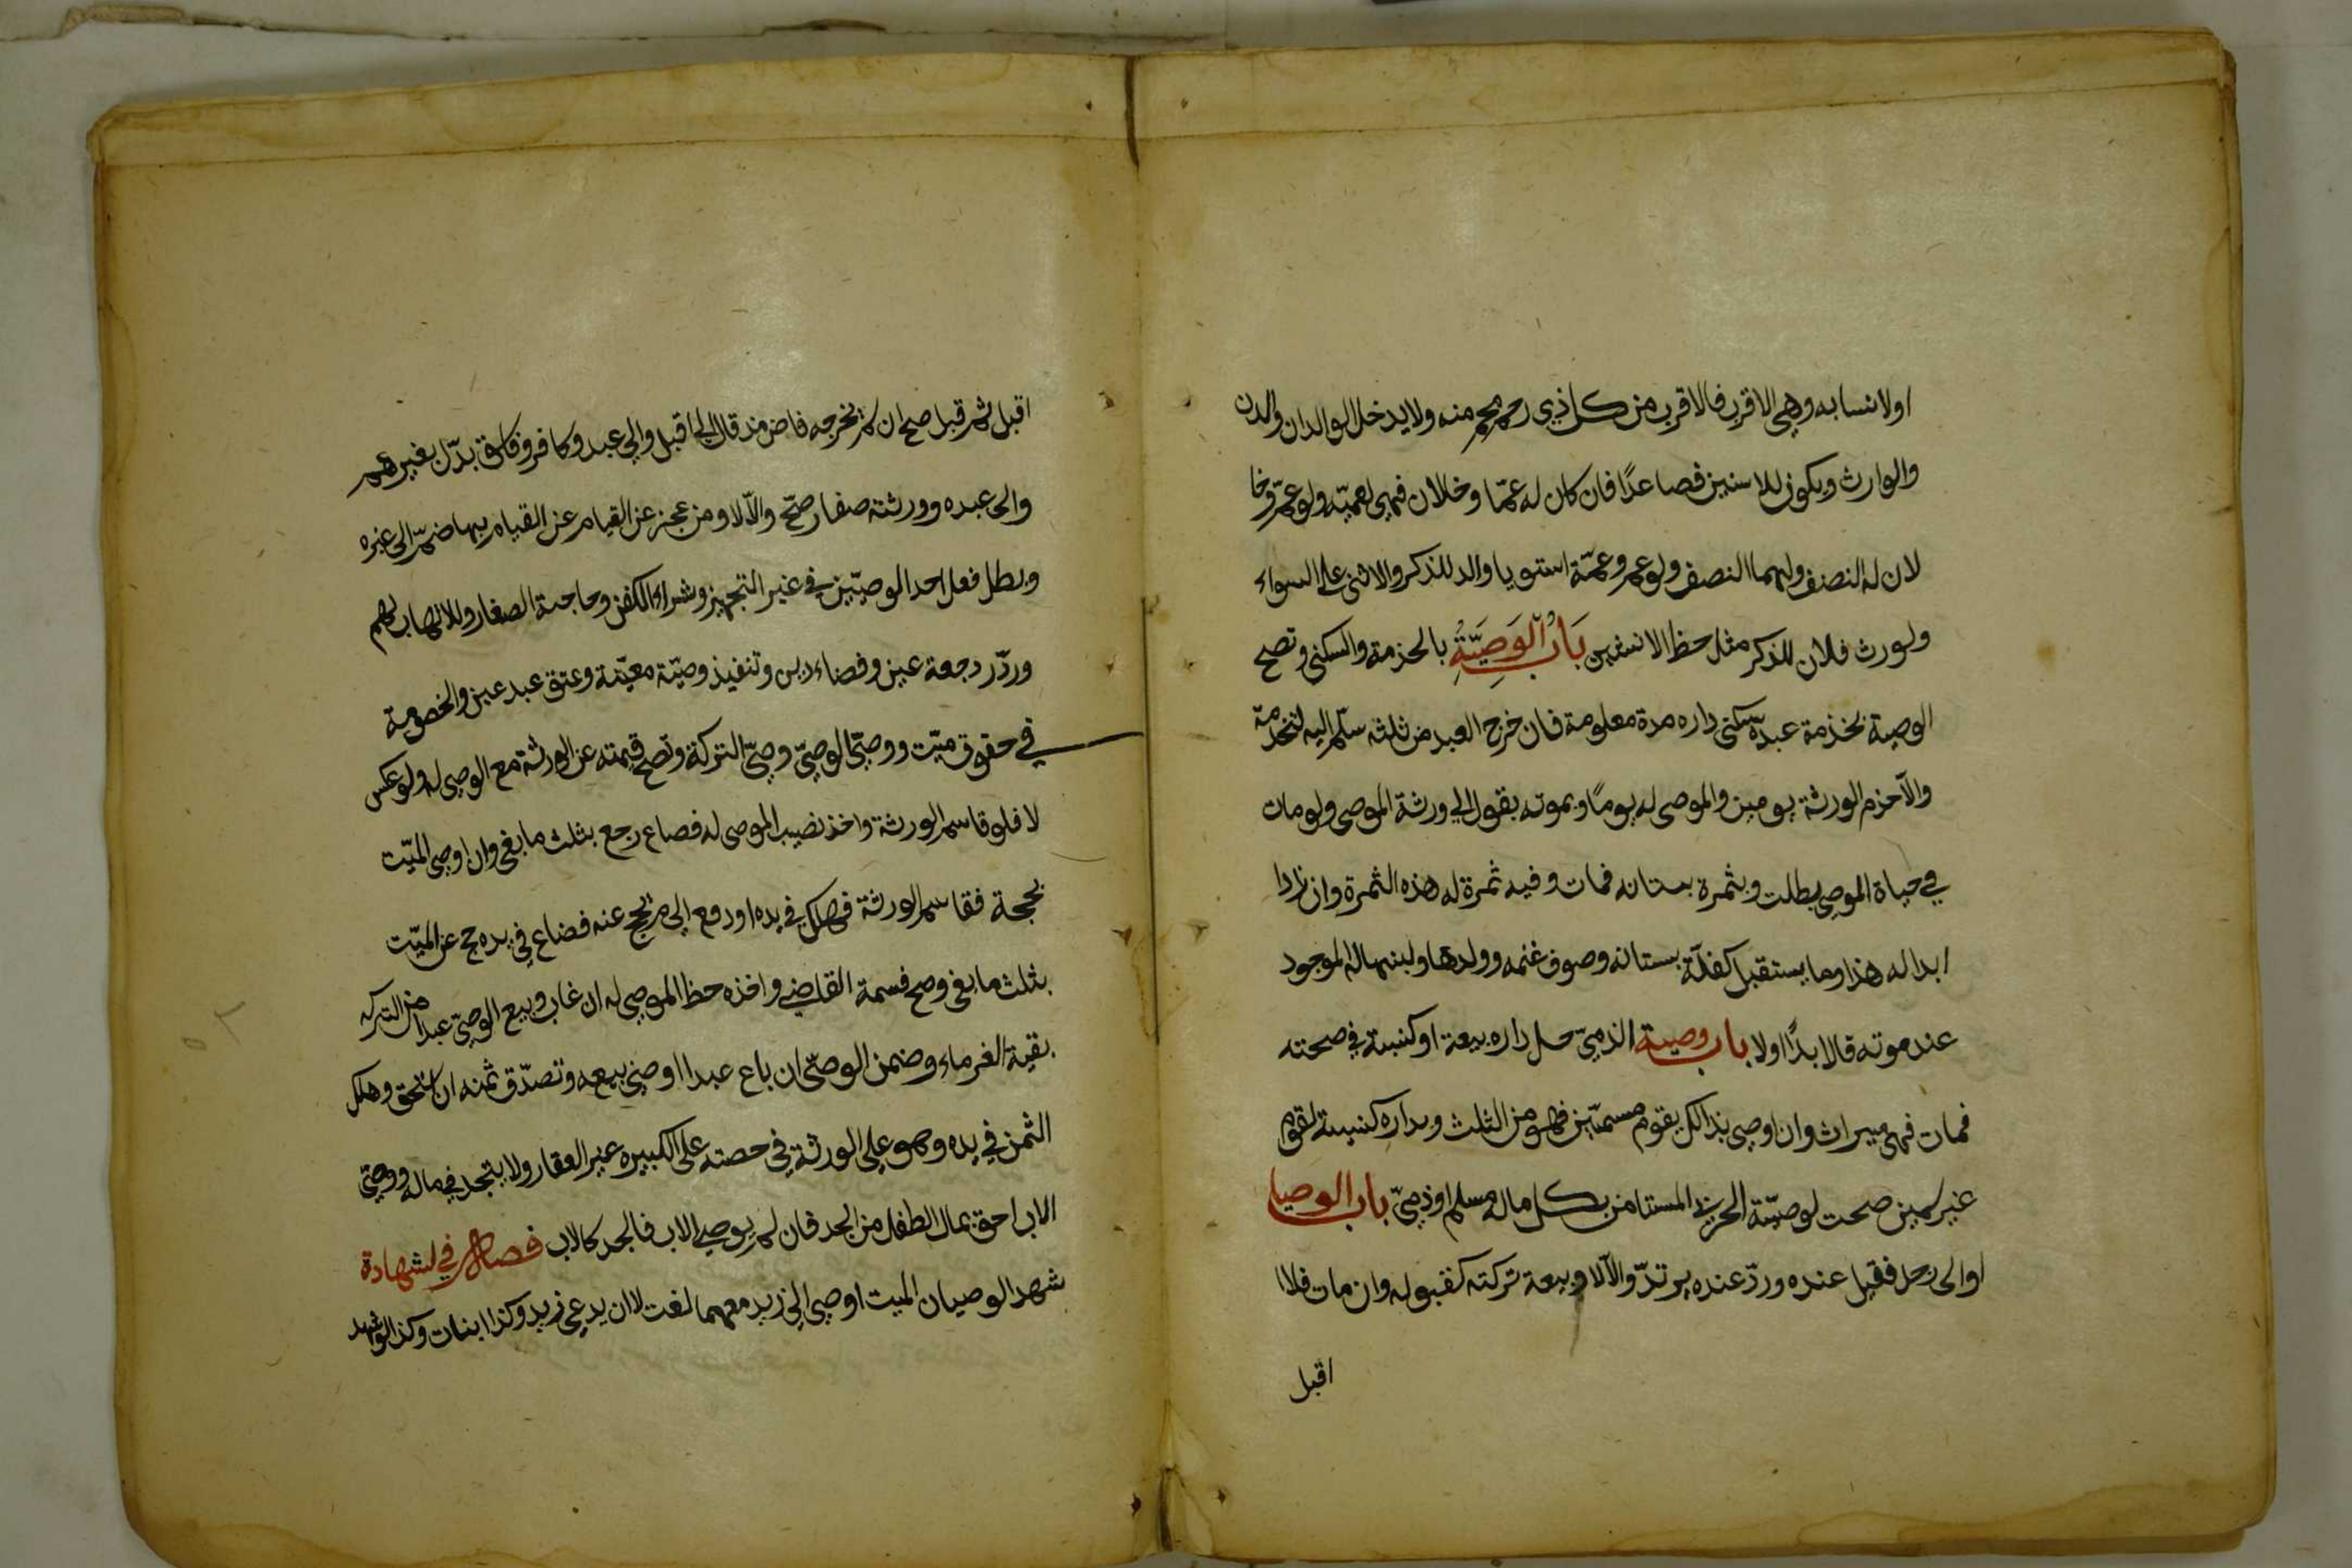 اولانسابه وهي الاقرب فالاقرب من كل ذي رحم محرم منه ولا يدخل الوالدان والدن
والوارث ويكون للاسنين فصاعدًا فان كان له عمّا وخلان فهي لعميّه ولو عمّ وخا
لان له النصف ولهما النصف ولو عم وعمّة استويا ولد للذكر والانثى على السواء
ولورث فلان للذكر مثل حظ الانثيين بَابُ الوَصِيَّةِ بالخدمة والسكنى وتصح
الوصية بخذمة عبده سكنى داره مدة معلومة فان خرج العبد من ثلثه سلّم اليه لتخدمة
والآخزم الورثة يومين والموصى له يومًا وبموته يقول الي ورثة الموصى ولو مات
في حياة الموصي بطلت وبثمرة بستانه فمات وفيه ثمرة له هذه الثمرة وان زدا
ابدا له هذا وما يستقبل كغلّة بستانه وصوف غنمه وولدها ولبنها له الموجود
عند موته قال ابدًا اولا باب وصية الذميّ جعل داره بيعة او كنيسة في صحته
فمات فهى ميراث وان اوصى بذالك بقوم مسمّين فهو من الثلث وبداره كنيسة لقوم
غير سمين صحت لوصيّة الحربي المستامن بكل ماله مسلم او ذميّ باب الوصيا
اوالى رجل فقبل عنده وردّ عنده يرتدّ والآلا وبيعة تركته كقبوله وان مات فلاا
اقبل
اقبل ثم قبل صح ان لم يخرجه قاض مذ قال الى اقبل والي عبد وكافر وفاسق بدّل بغيرهم
والى عبده وورثته صغار صحّ والاّ لا ومن عجز عن القيام عن القيام بها ضمّ الى غيره
وبطل فعل احد الوصيّين في غير التجهيز وشراء الكفن وحاجة الصغار وللاتهاب لهم
وردّ ردجعة عين وقضاء دين وتنفيذ وصيّة معيّنة وعتق عبد عين والخصومة
في حقوق ميّت ووصيّ الوصيّ وصيّ التركة وتصح قيمته عن الورثة مع الموصى له ولو عكس
لا فلو قاسم الورثة واخذ نصيب الموصى له فضاع رجع بثلث ما بقى وان اوصى الميّت
بحجة فقاسم الورثة فهلك في يده او دفع الى من يحج عنه فضاع في يده حج عن الميّت
بثلث ما بقى وصح قسمة القاضي واخذه حظ الموصى له ان غاب وبيع الوصيّ عبدا من التركه
بقية الغرماء وضمن الوصيّ ان باع عبدا اوصى ببيعه وتصدّق ثمنه ان استحق وهلك
الثمن في يده وهو على الورثة في حصته على الكبيره غير العقار ولا يتجد في ماله ووصيّ
الاب احق بمال الطفل من الجد فان لم يوصي الاب فالجد كالاب فصل في لشهادة
شهد الوصيان الميت اوصى الى زيد معهما لغت الا ان يدعى زيد وكذا ابنات وكذا لو شهد